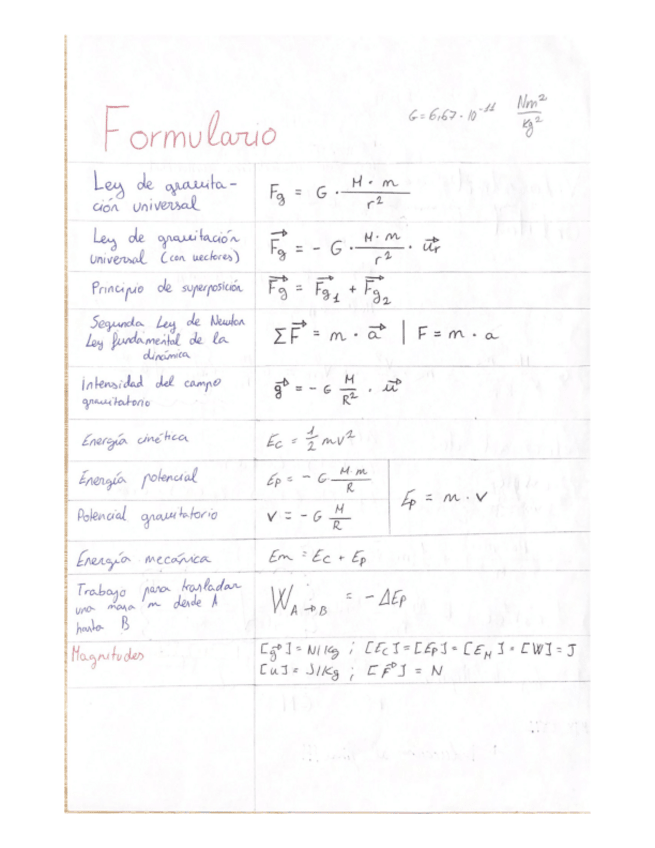 Formulario
G = 6,67 · 10⁻¹¹ Nm²/kg²
Ley de gravita-
ción universal
Fg = G · M · m / r²
Ley de gravitación
universal (con vectores)
F⃗g = - G · M · m / r² · u⃗r
Principio de superposición
F⃗g = F⃗g₁ + F⃗g₂
Segunda Ley de Newton
Ley fundamental de la
dinámica
ΣF⃗ = m · a⃗ | F = m · a
Intensidad del campo
gravitatorio
g⃗ = - G M / R² · u⃗
Energía cinética
Ec = 1/2 mv²
Energía potencial
Ep = - G M·m / R
Potencial gravitatorio
V = - G M / R
Ep = m · v
Energía mecánica
Em = Ec + Ep
Trabajo para trasladar
una masa m desde A
hasta B
W A→B = - ΔEp
Magnitudes
[g⃗] = N/kg ; [Ec] = [Ep] = [EM] = [W] = J
[u] = J/kg ; [F⃗] = N